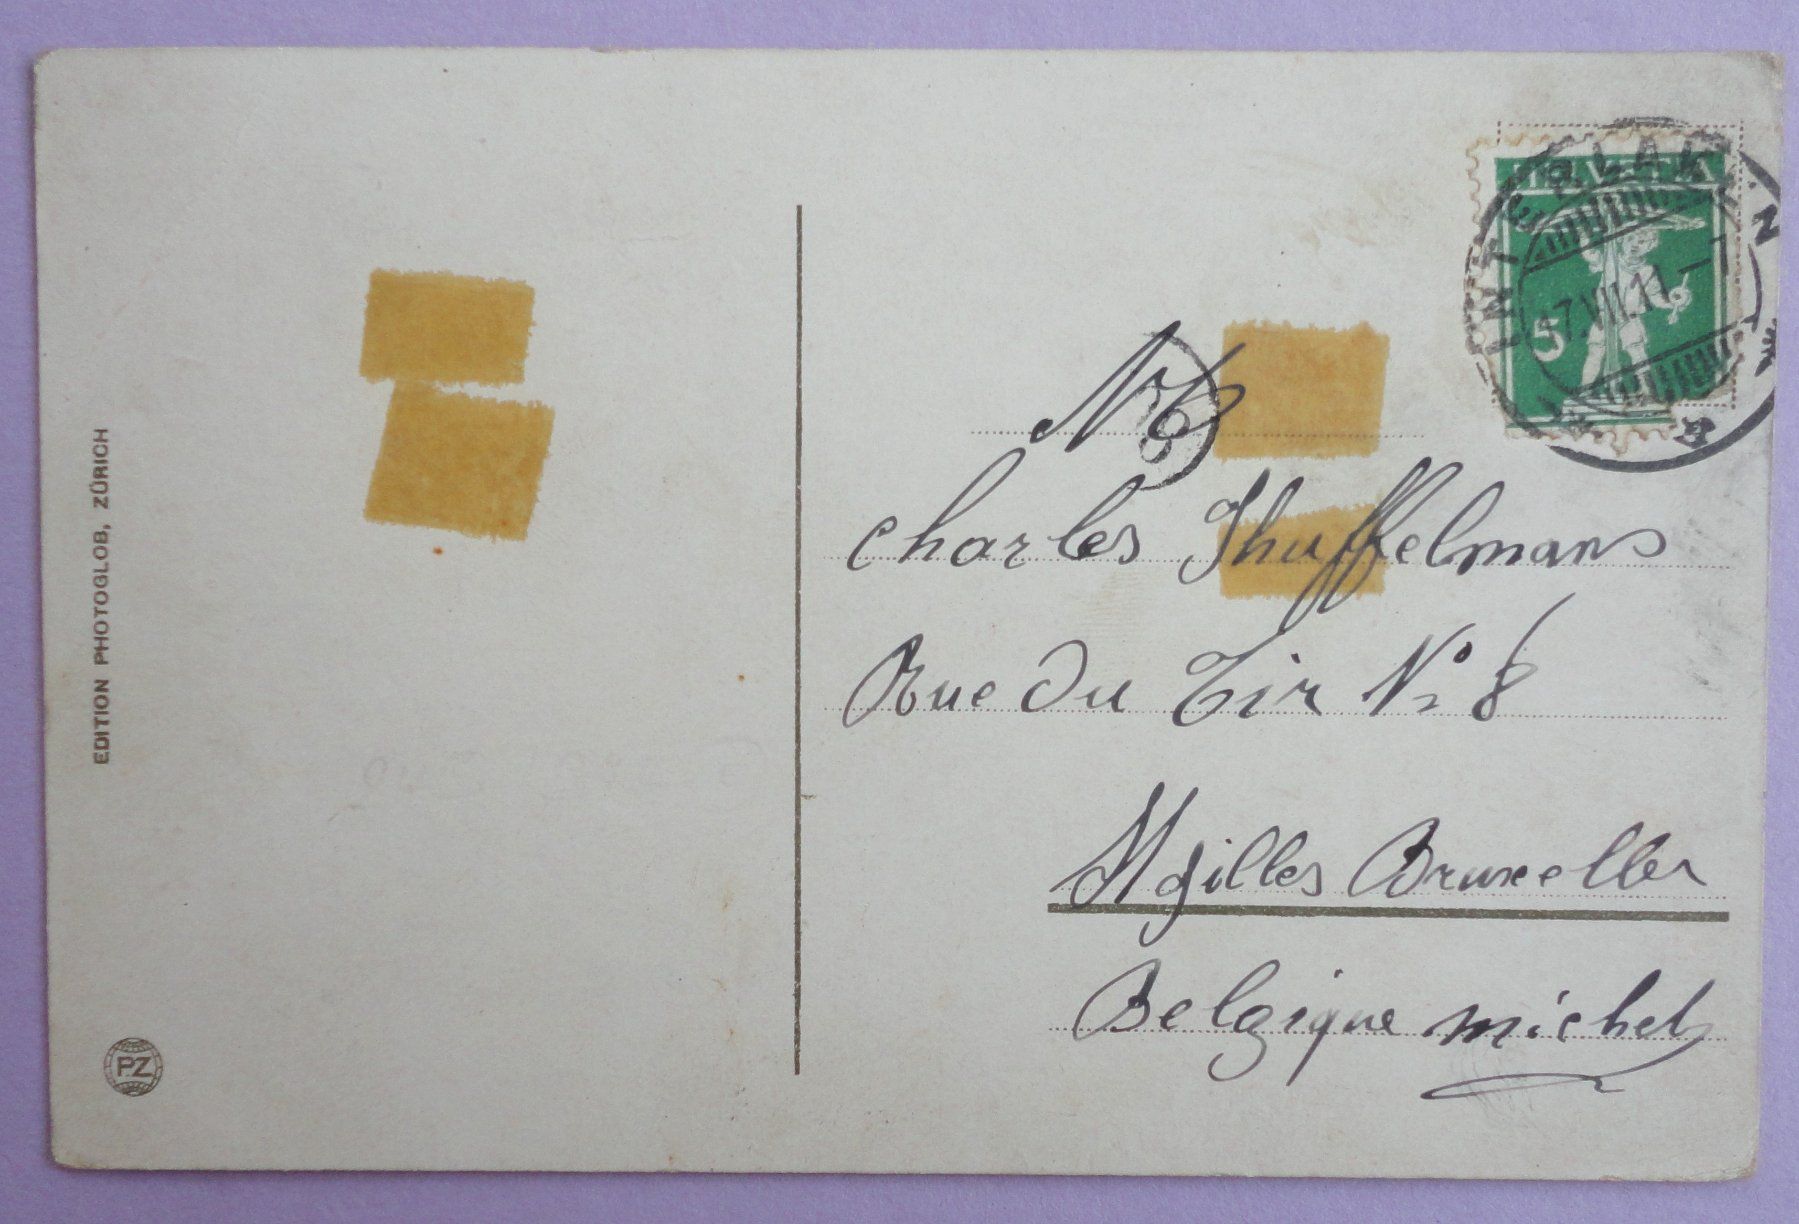 EDITION PHOTOGLOB, ZÜRICH
PZ
INTERLAKEN
HELVETIA
17.VII.11-7
5
Mr
Charles Thuffelmans
Rue du Tir No 8
St gilles Bruxelles
Belgique michel